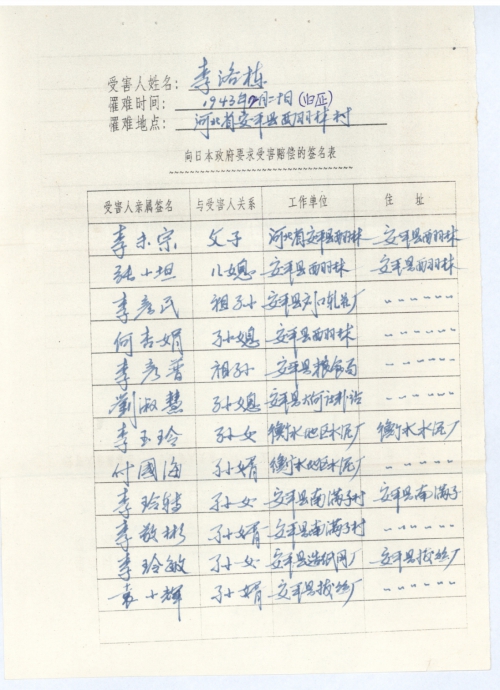 受害人姓名：李洛栋
罹难时间：1943年 月二十日(旧历)
罹难地点：河北省安平县西羽林村
向日本政府要求受害赔偿的签名表
受害人亲属签名 与受害人关系 工作单位 住 址
李木宗 父子 河北省安平县西羽林 安平县西羽林
张小坦 儿媳 安平县西羽林 安平县西羽林
李彦民 祖孙 安平县 轧花厂 〃〃〃〃〃〃
何杏娟 孙媳 安平县西羽林 〃〃〃〃〃〃
李彦普 祖孙 安平县粮食局 〃〃〃〃〃〃
劉淑慧 孙媳 安平县大何 站 〃〃〃〃〃〃
李玉玲 孙女 衡水地区水泥厂 衡水水泥厂
付國海 孙婿 衡水地区水泥厂 〃〃〃〃〃〃
李玲 孙女 安平县南满子村 安平县南满子
李敬彬 孙婿 安平县南满子村 〃〃〃〃〃〃
李玲敏 孙女 安平县造纸网厂 安平县拔丝厂
袁小辉 孙婿 安平县拔丝厂 〃〃〃〃〃〃